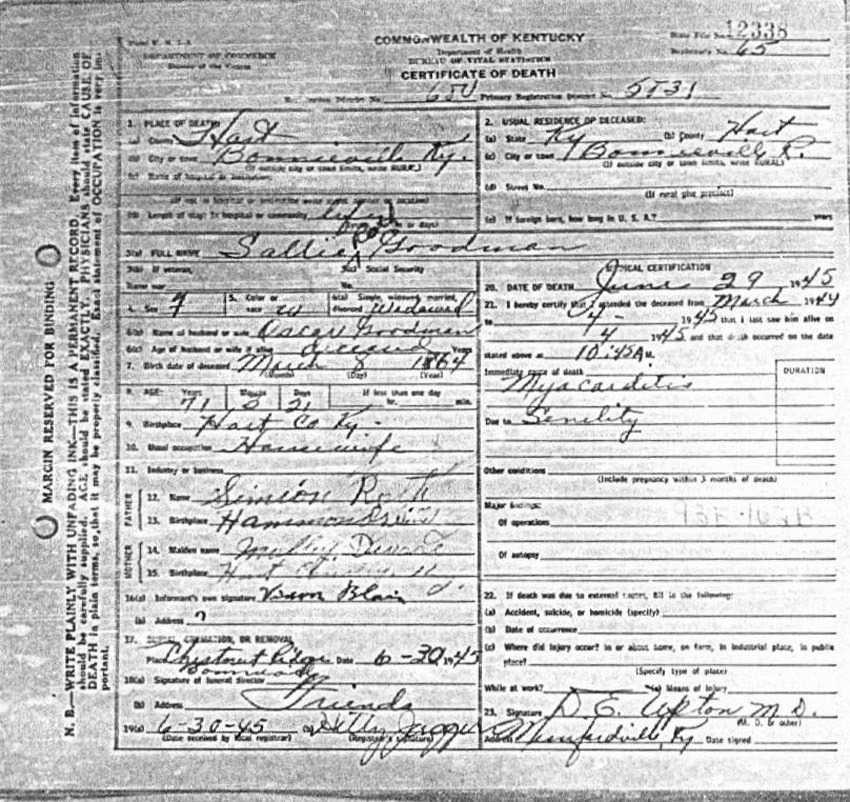 COMMONWEALTH OF KENTUCKY
DEPARTMENT OF COMMERCE
Bureau of the Census
Department of Health
BUREAU OF VITAL STATISTICS
CERTIFICATE OF DEATH
State File No. 12338
Registrar's No. 65
650 Primary Registration District No. 5531
MARGIN RESERVED FOR BINDING
N. B.—WRITE PLAINLY WITH UNFADING INK—THIS IS A PERMANENT RECORD. Every item of information
should be carefully supplied. AGE should be stated EXACTLY. PHYSICIANS should state CAUSE OF
DEATH in plain terms, so that it may be properly classified. Exact statement of OCCUPATION is very im-
portant.
1. PLACE OF DEATH
(a) County Hart
(b) City or town Bonnieville Ky.
(If outside city or town limits, write RURAL)
(c) Name of hospital or institution:
(d) Length of stay: In hospital or community life
3(a) FULL NAME Sallie Roth Goodman
3(b) If veteran, name war
3(c) Social Security No.
4. Sex F
5. Color or race W
6(a) Single, widowed, married, divorced Widowed
6(b) Name of husband or wife Oscar Goodman
6(c) Age of husband or wife if alive deceased Years
7. Birth date of deceased March 8 1864
(Month) (Day) (Year)
8. AGE: Years 71 Months 3 Days 21 If less than one day hr. min.
9. Birthplace Hart Co Ky.
10. Usual occupation Housewife
11. Industry or business
FATHER
12. Name Simeon Roth
13. Birthplace
MOTHER
14. Maiden name
15. Birthplace Hart
16(a) Informant's own signature Vernon Blair
(b) Address ?
17. BURIAL, CREMATION, OR REMOVAL
Place Chestnut Ridge Date 6-30 1945
18(a) Signature of funeral director
(b) Address Friends
19(a) 6-30-45 (b) Jaggers
(Date received by local registrar) (Registrar's signature)
2. USUAL RESIDENCE OF DECEASED:
(a) State Ky (b) County Hart
(c) City or town Bonnieville R.
(If outside city or town limits, write RURAL)
(d) Street No.
(If rural give precinct)
(e) If foreign born, how long in U. S. A.? years
MEDICAL CERTIFICATION
20. DATE OF DEATH June 29 1945
21. I hereby certify that I attended the deceased from March 1944
to 4- 1945 that I last saw him alive on
4 1945 and that death occurred on the date
stated above at 10:45 A M.
Immediate cause of death
DURATION
Myocarditis
Due to Senility
Other conditions
(Include pregnancy within 3 months of death)
Major findings:
Of operations
Of autopsy
22. If death was due to external causes, fill in the following:
(a) Accident, suicide, or homicide (specify)
(b) Date of occurrence
(c) Where did injury occur? In or about home, on farm, in industrial place, in public
place?
(Specify type of place)
While at work? (e) Means of Injury
23. Signature D. E. Upton M.D.
(M. D. or other)
Address Munfordville, Ky Date signed